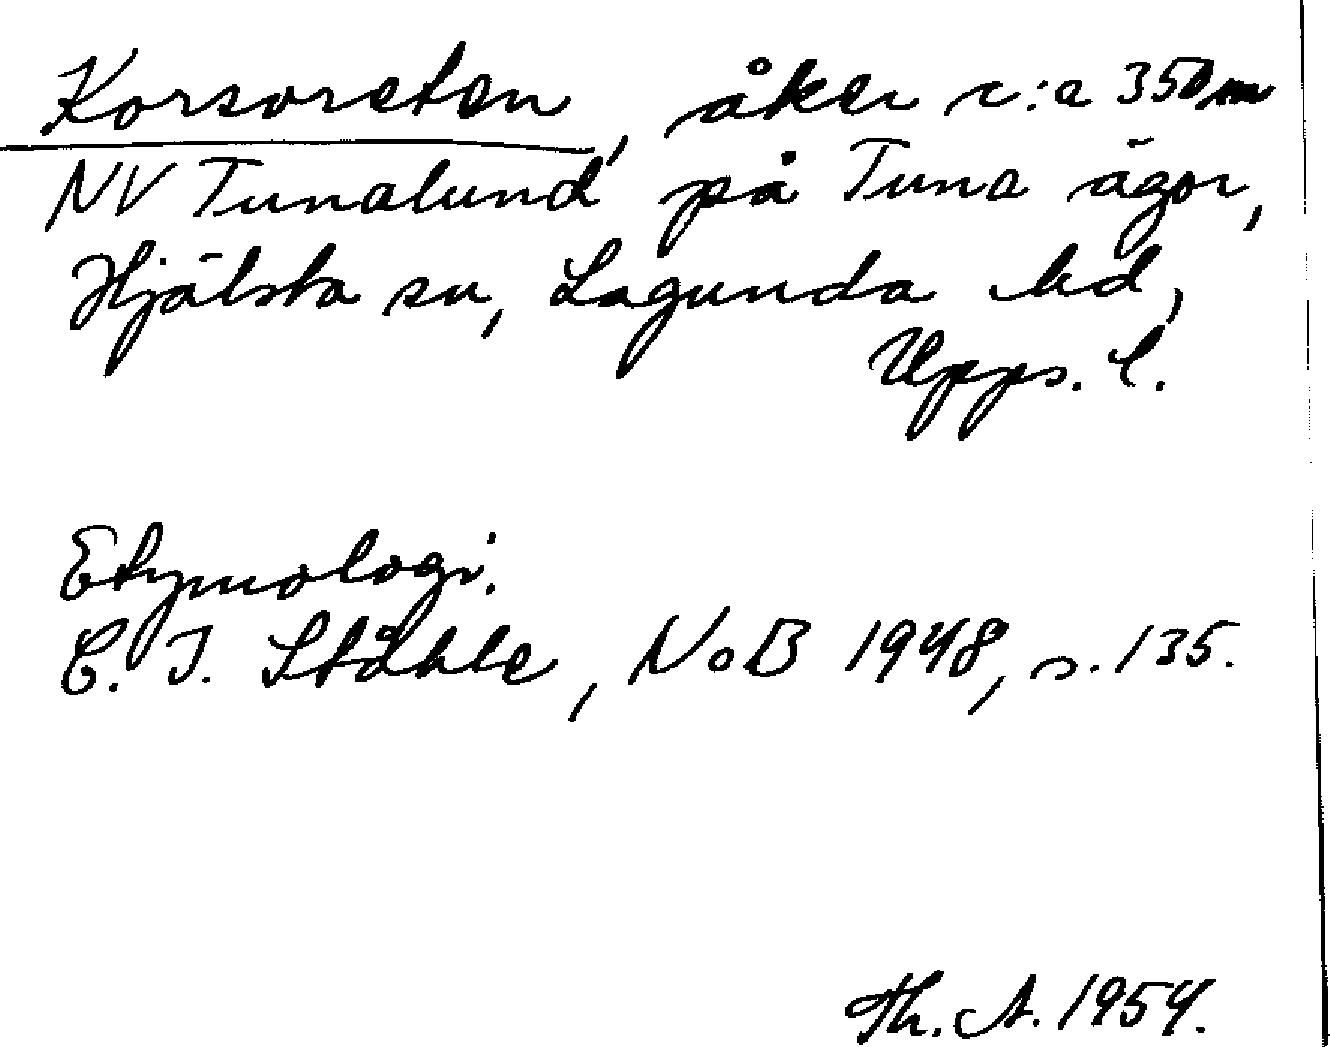 Korsoreten, åker c:a 350 m
NV Tunalund på Tuna ägor,
Hjälsta sn, Lagunda hd,
Upps. l.
Etymologi.
C. I. Ståhle, NoB 1948, s. 135.
Th. A. 1954.